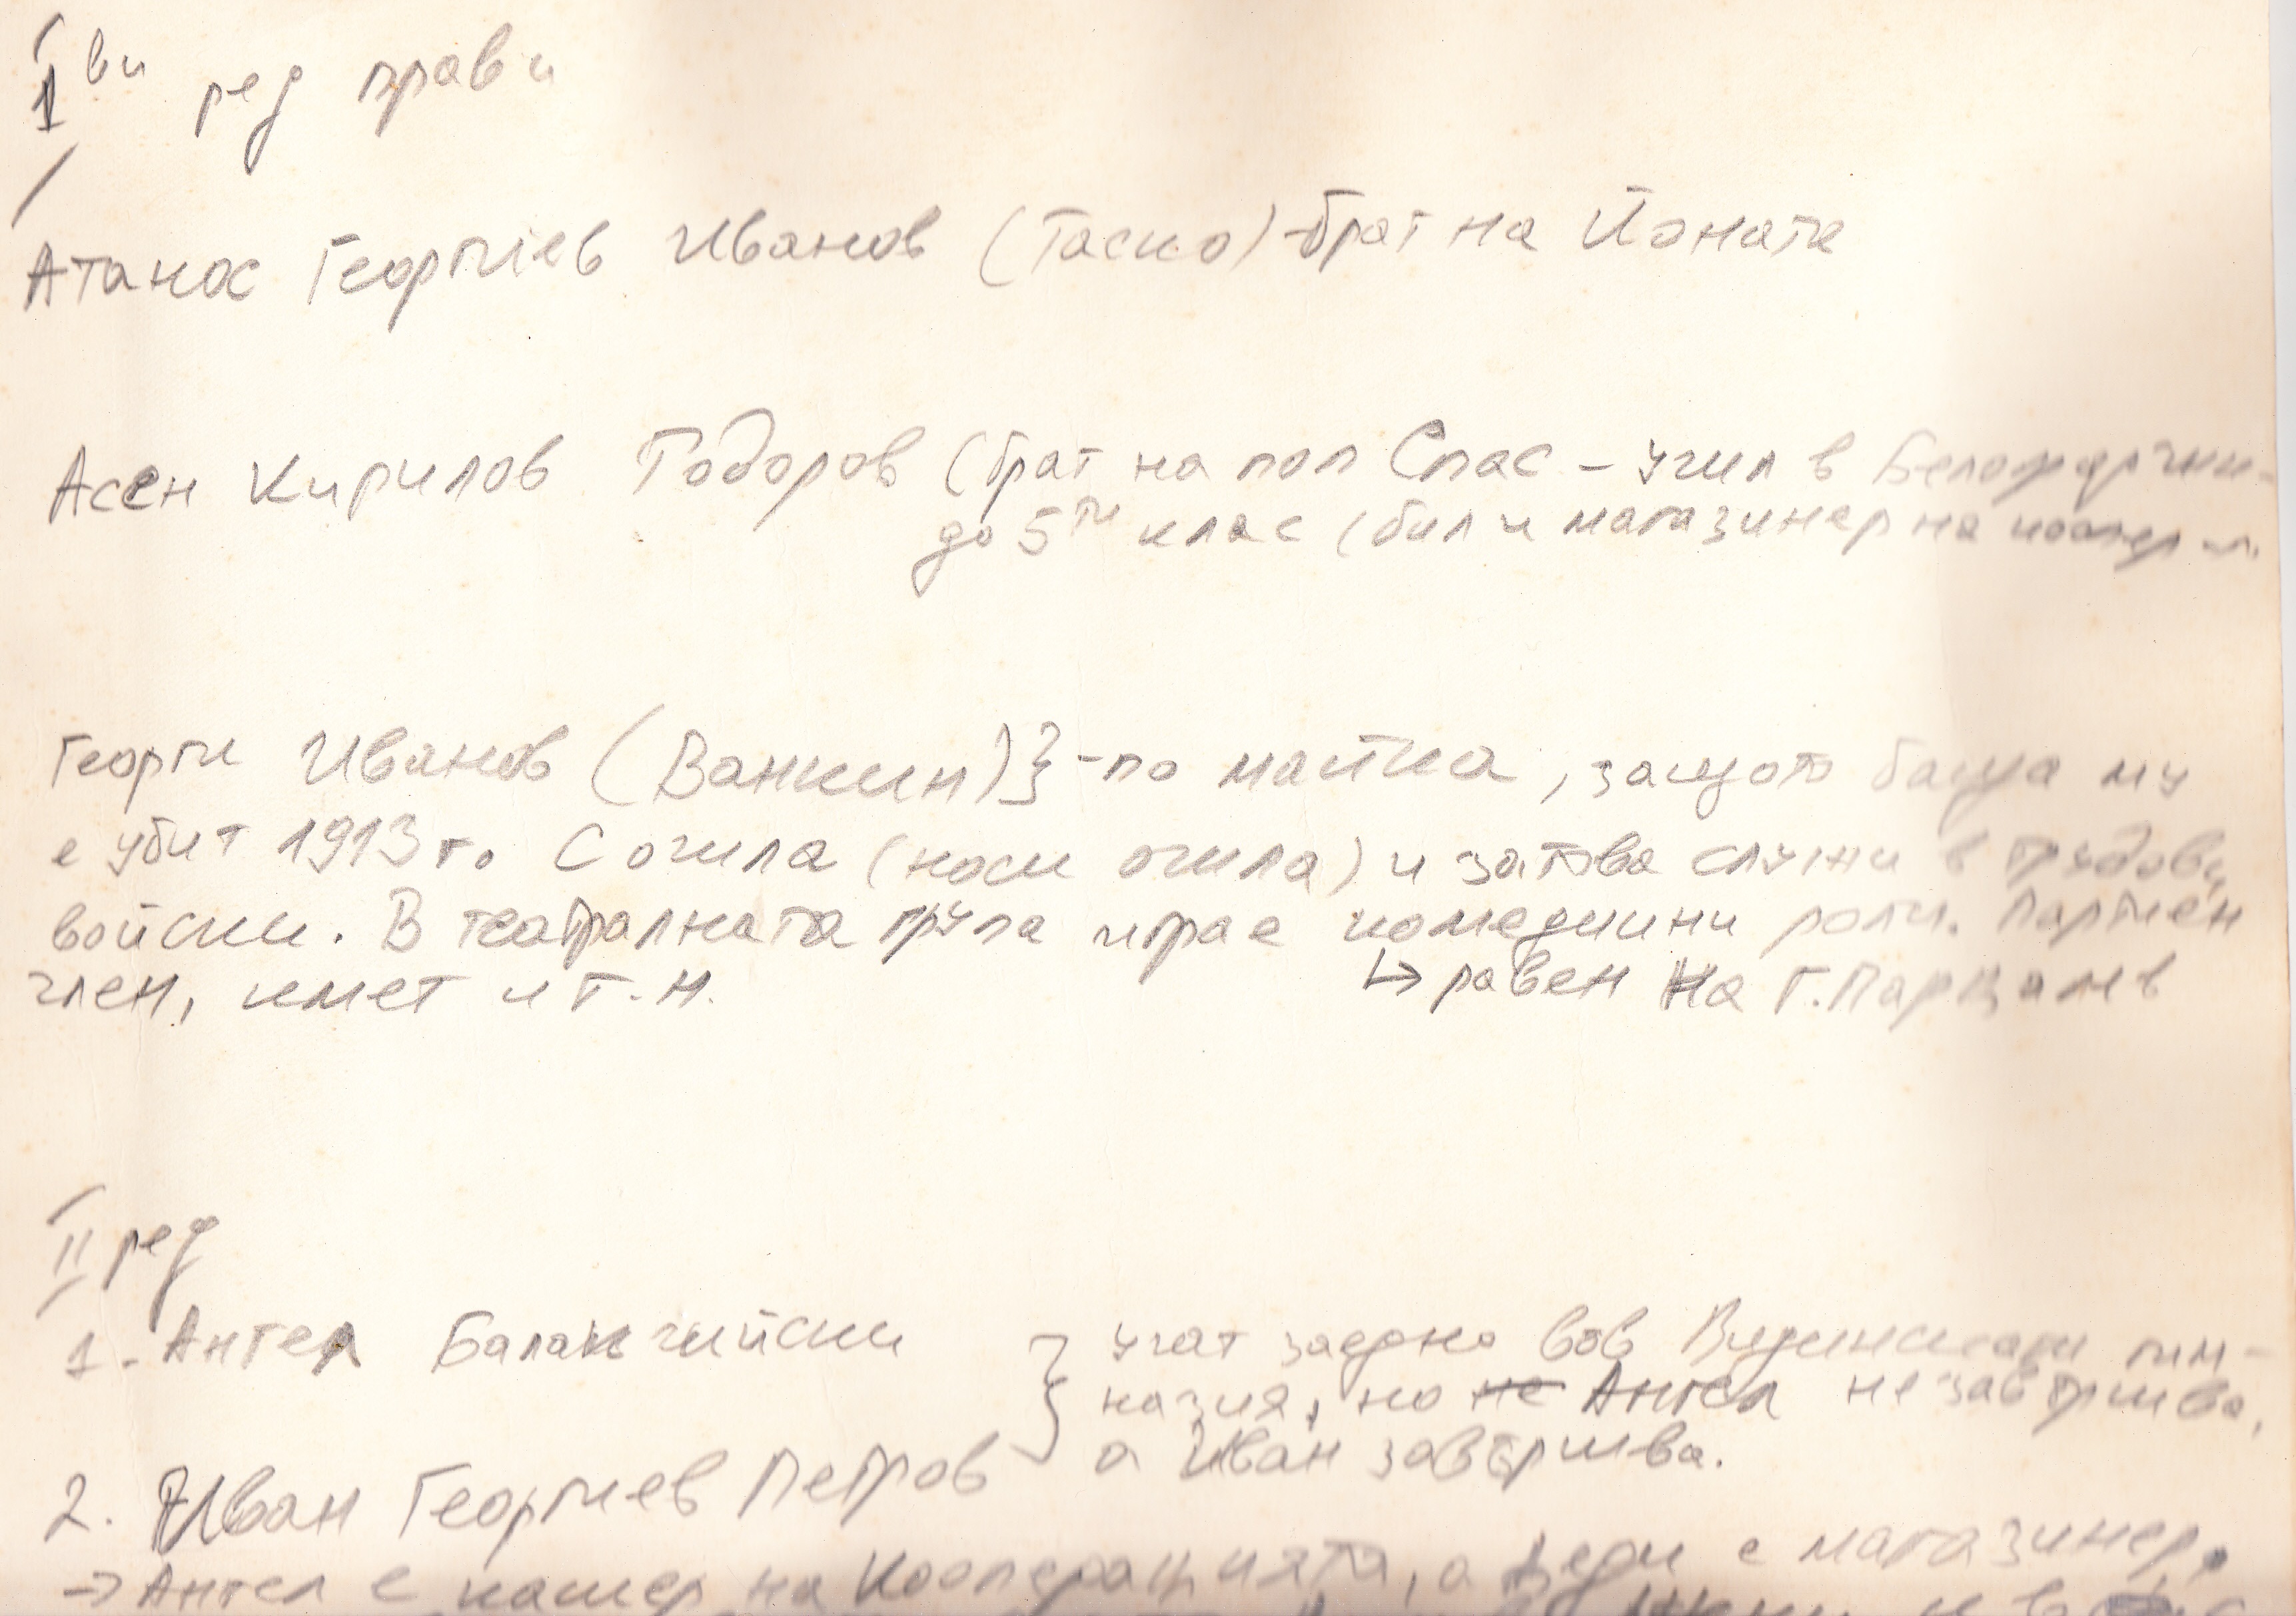 1ви ред прави
Атанас Георгиев Иванов (Таско) - брат на Йоната
Асен Кирилов Тодоров (брат на поп Спас - учил в
до 5ти клас (бил и магазинер на
Георги Иванов (Ванкин)} - по майка, защото баща му
е убит 1913 г. С очила (носи очила) и затова служи в трудови
войски. В театралната група играе комедийни роли. Партиен
член, кмет и т.н.
↳ равен на Г. Парцалев
II ред
1. Ангел Баланчийски } учат заедно във Видинската гим-
назия, но не Ангел не завършва,
а Иван завършва.
2. Иван Георгиев Петров
→ Ангел е касиер на Кооперацията, а е магазинер,